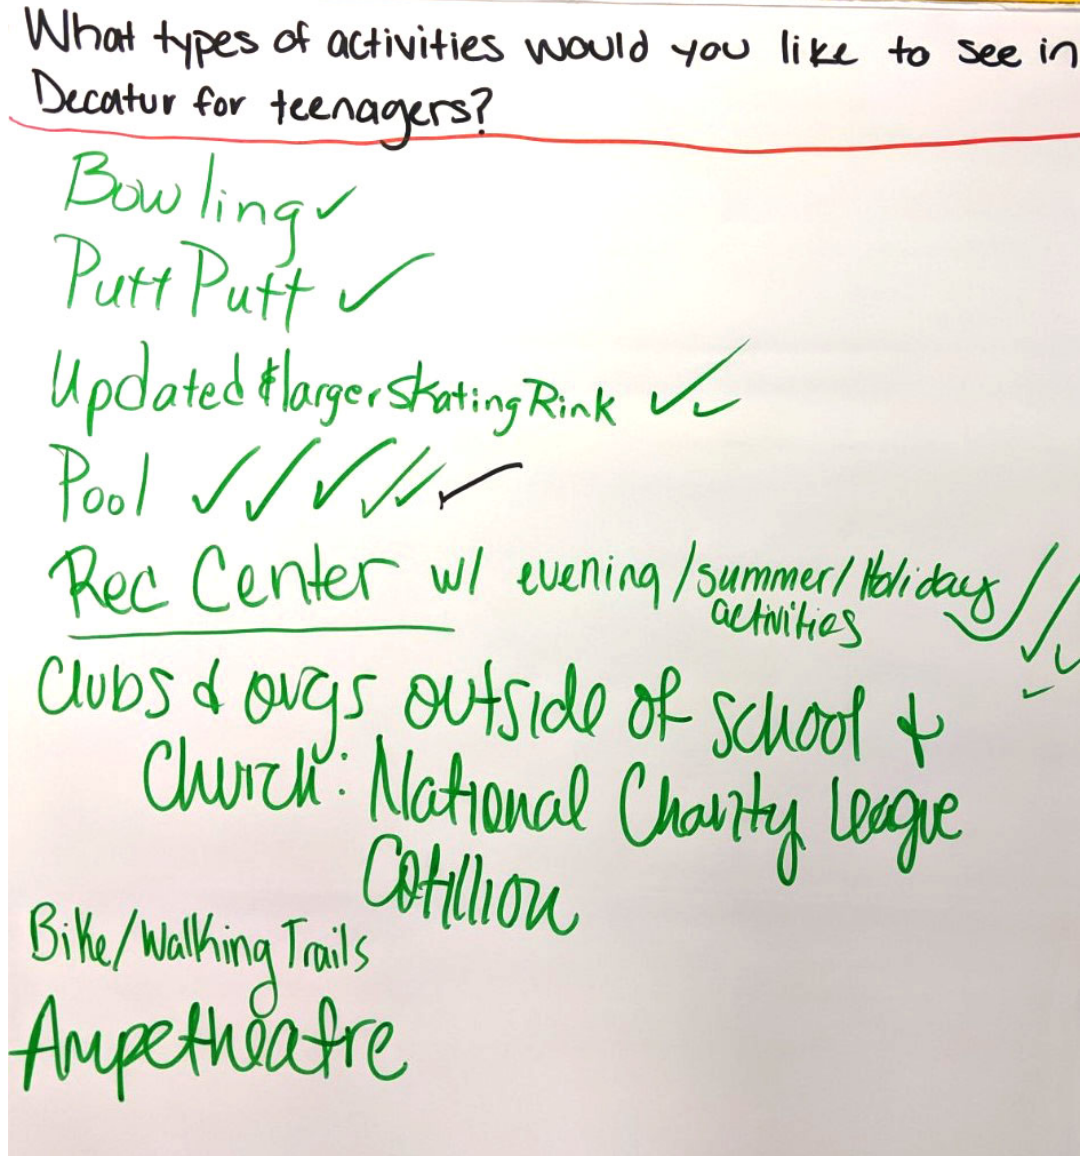 What types of activities would you like to see in
Decatur for teenagers?
Bowling ✓
Putt Putt ✓
Updated & larger Skating Rink ✓✓
Pool ✓✓✓✓✓✓
Rec Center w/ evening/summer/Holidays
activities
Clubs & orgs outside of school &
Church: National Charity League
Cotillion
Bike/Walking Trails
Ampetheatre